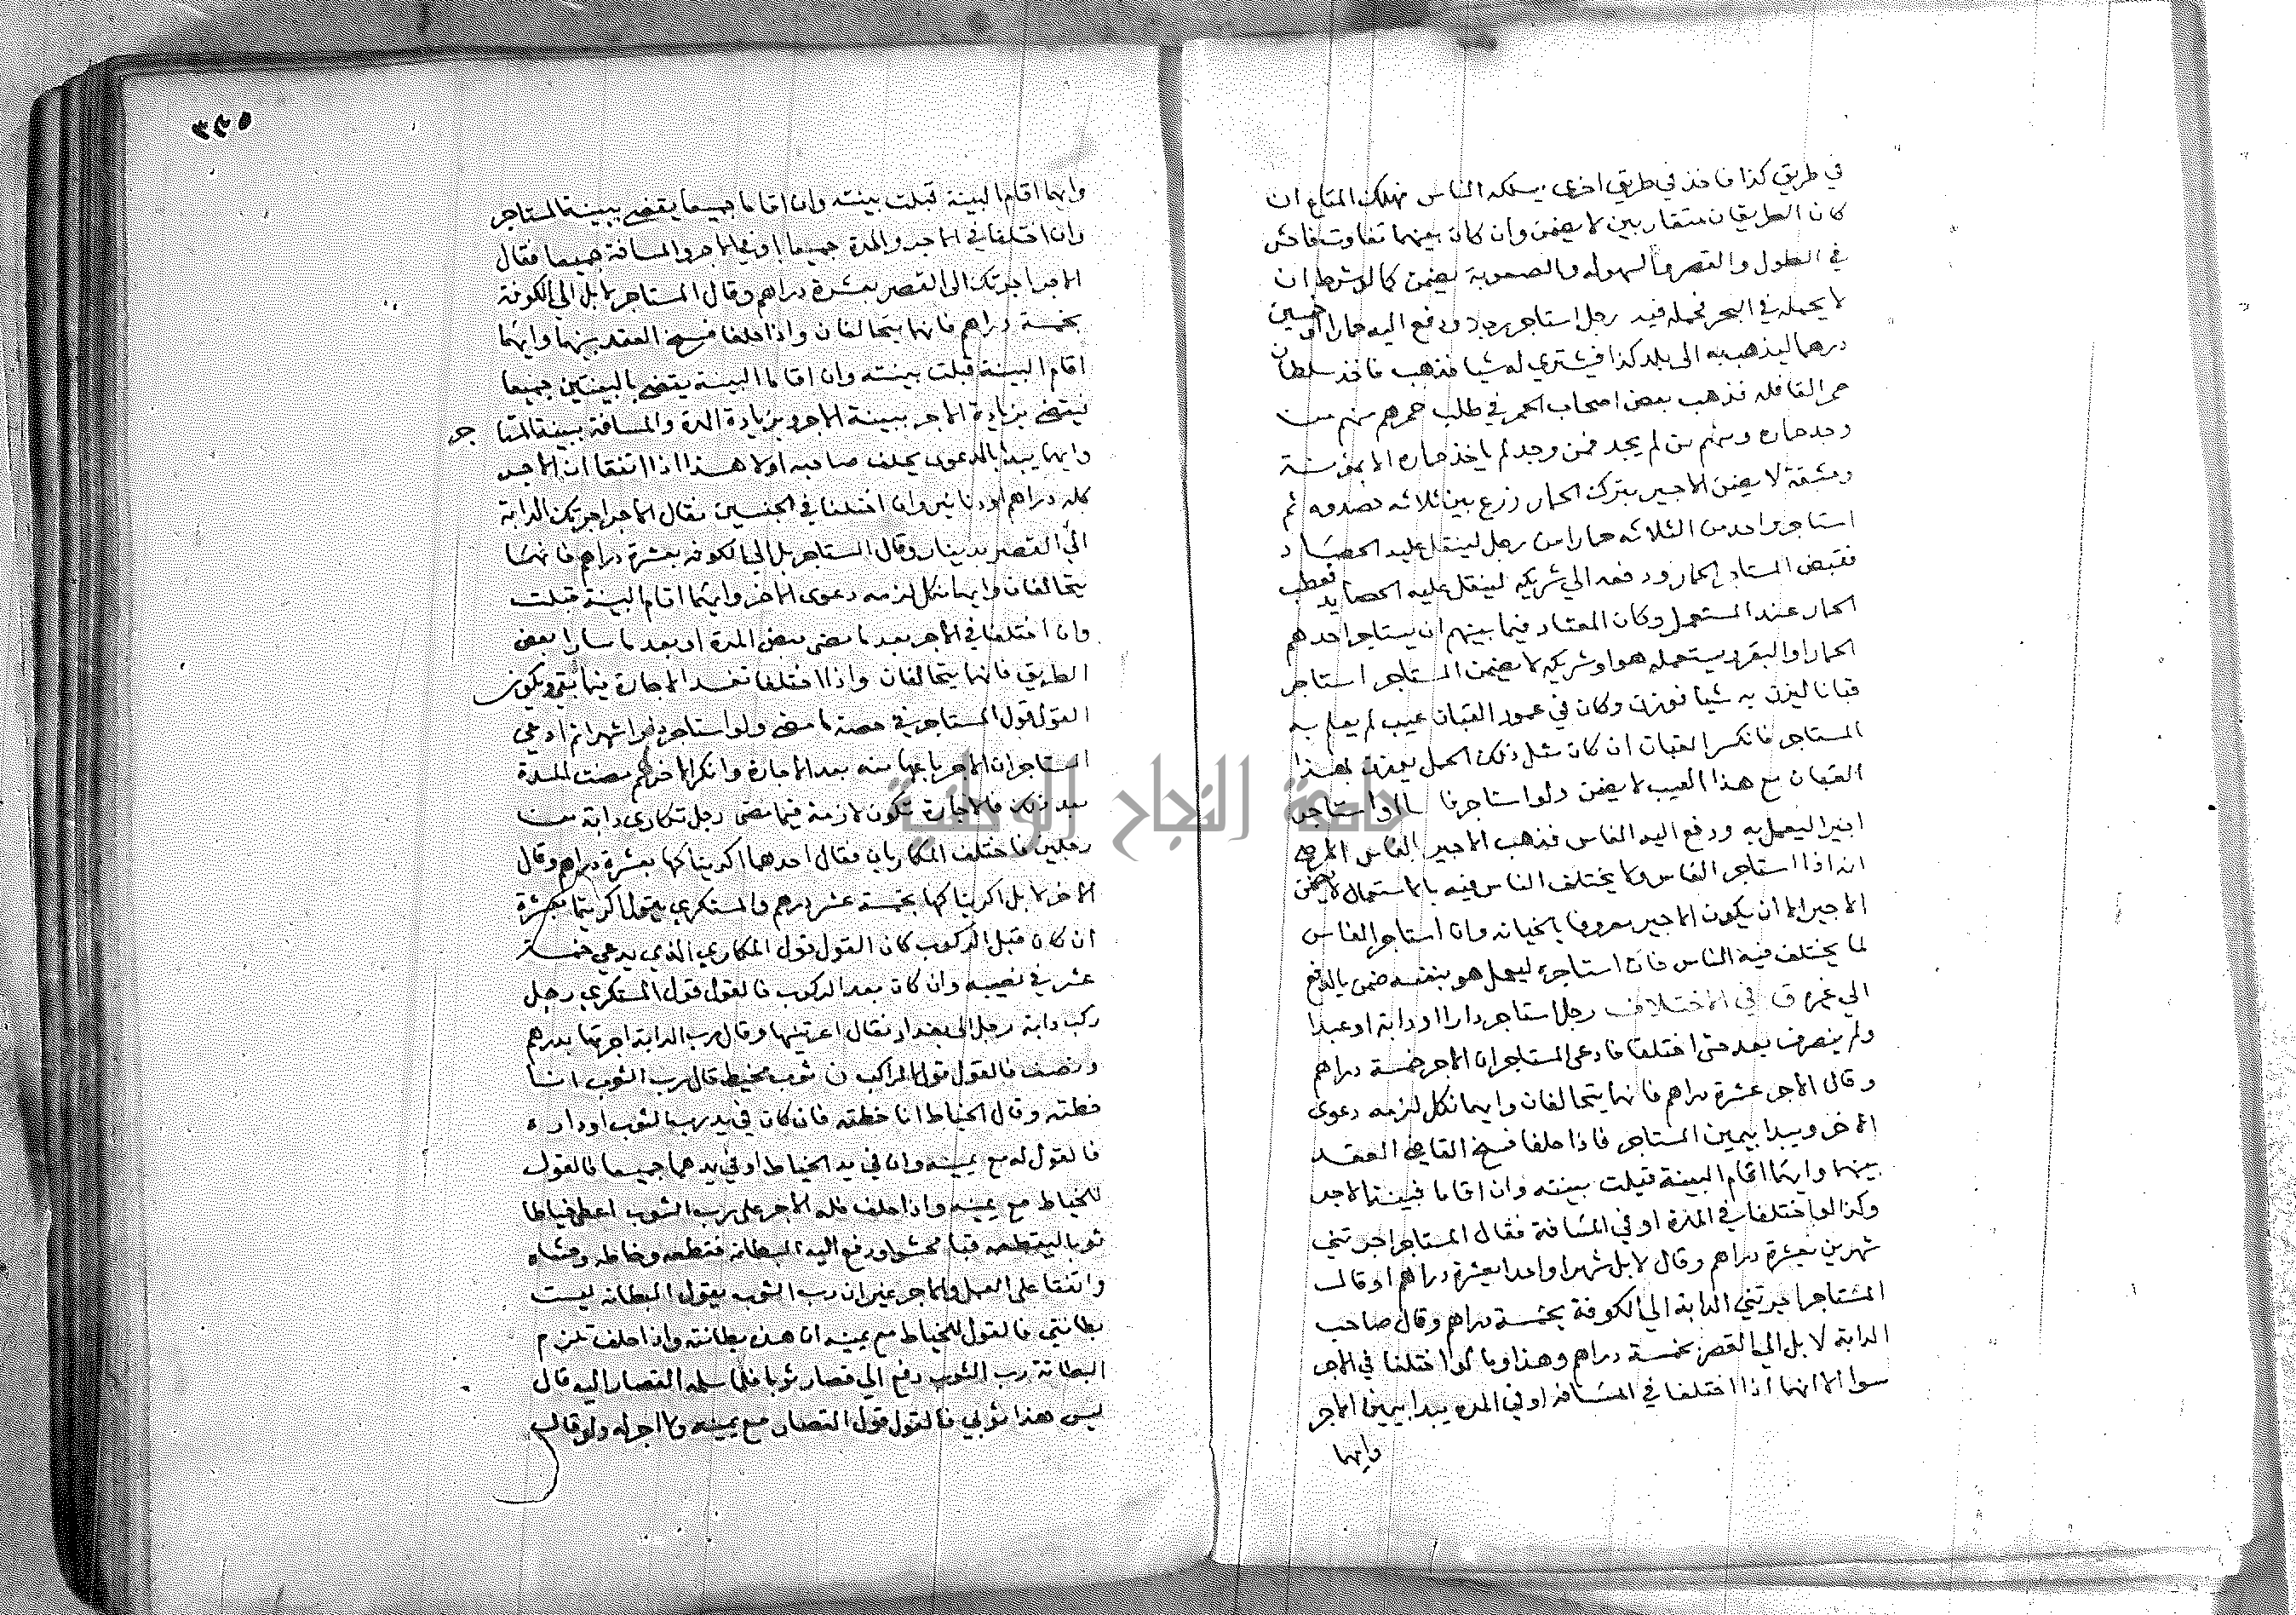 في طريق كذا فاخذ في طريق اخرى يسلكه الناس فهلك المتاع ان
كان الطريقان متقاربين لا يضمن وان كان بينهما تفاوت فاحش
في الطول والقصر والسهوله والصعوبة يضمن كما لو شرط ان
لا يحمله في البحر فحمله فيه رجل استاجر رجلا ودفع اليه حمارا او خمسين
درهما ليذهب به الى بلد كذا فيشتري له شيا فذهب فاخذ سلطان
حمر القافله فذهب بعض اصحاب الحمر في طلب حمرهم منهم من
وجد حماره ومنهم من لم يجد فمن وجد لم ياخذ حماره الا بمؤنسة
ومشقة لا يضمن الاجير بترك الحمار زرع بين ثلاثه حصدوه ثم
استاجر واحد من الثلاثه حمارا من رجل لينقل عليه الحصاد
فقبض المستاجر الحمار ودفعه الي شريكه لينقل عليه الحصايد فعطب
الحمار عند المستعمل وكان المعتاد فيما بينهم ان يستاجر احدهم
الحمار او البقر ويستعمله هو او شريكه لا يضمن المستاجر استاجر
قبانا ليزن به شيا فوزن وكان في عمود القبان عيب لم يعلم به
المستاجر فانكسر القبان ان كان مثل ذلك الحمل يوزن بهذا
القبان مع هذا العيب لا يضمن ولو استاجر فاسا او استاجر
اجيرا ليعمل به ودفع اليه الفاس فذهب الاجير بالفاس
انه اذا استاجر الفاس ولا يختلف الناس فيه بالاستعمال لا يضمن
الاجير الا ان يكون الاجير معروفا بالخيانه وان استاجر الفاس
لما يختلف فيه الناس فان استاجره ليعمل هو بنفسه ضمن بالدفع
الي غيره ق في الاختلاف رجل استاجر دارا او دابة او عبدا
ولم ينصرف بعد حتى اختلفا فادعى المستاجر ان الاجر خمسة دراهم
وقال الاجر عشرة دراهم فانهما يتحالفان وايهما نكل لزمه دعوى
الاخر ويبدا بيمين المستاجر فاذا حلفا فسخ القاضي العقد
بينهما وايهما اقام البينة قبلت بينته وان اقاما فبينة الاجر
وكذا لو اختلفا في المدة او في المسافة فقال المستاجر اجرتني
شهرين بعشرة دراهم وقال لا بل شهرا واحدا بعشرة دراهم او قال
المستاجر اجرتني الدابة الي الكوفة بخمسة دراهم وقال صاحب
الدابة لا بل الي القصر بخمسة دراهم وهذا وما لو اختلفا في الاجر
سوا الا انهما اذا اختلفا في المسافه او في المده يبدا بيمين الاجر
وايهما
٣٣٥
وايهما اقام البينة قبلت بينته وان اقاما جميعا يقضي ببينة المستاجر
وان اختلفا في الاجر والمدة جميعا او في الاجر والمسافة جميعا فقال
الاجر اجرتك الى القصر بعشرة دراهم وقال المستاجر لا بل الي الكوفة
بخمسة دراهم فانهما يتحالفان واذا حلفا فسخ العقد بينهما وايهما
اقام البينة قبلت بينته وان اقاما البينة يقضي بالبينتين جميعا
فيقضي بزيادة الاجر ببينة الاجر وبزيادة المدة والمسافة ببينة المستا
جر
وايهما يبدا بالدعوى يحلف صاحبه اولا هذا اذا اتفقا ان الاجر
كله دراهم او دنانير وان اختلفا في الجنسين فقال الاجر اجرتك الدابة
الي القصر بدينار وقال المستاجر بل الي الكوفه بعشرة دراهم فانهما
يتحالفان وايهما نكل لزمه دعوى الاخر وايهما اقام البينة قبلت
وان اختلفا في الاجر بعد ما مضى بعض المدة او بعد ما سارا بعض
الطريق فانهما يتحالفان واذا اختلفا تفسد الاجارة فيما بقي ويكون
القول قول المستاجر في حصة ما مضى ولو استاجر دارا شهرا ثم ادعى
المستاجر ان الاجر باعها منه بعد الاجارة وانكر الاخر ثم مضت المدة
بعد ذلك فالاجارة تكون لازمة فيما مضى رجل تكارى دابة من
رجلين فاختلف المكاريان فقال احدهما اكريناكها بعشرة دراهم وقال
الاخر لا بل اكريناكها بخمسة عشر درهم والمستكري يقول اكريتما بعشرة
ان كان قبل الركوب كان القول قول المكاري الذي يدعي خمسة
عشر في نصيبه وان كان بعد الركوب فالقول قول المستكري رجل
ركب دابة رجل الى بغداد فقال اعرتنيها وقال رب الدابة اجرتها بدرهم
ونصف فالقول قول الراكب ن ثوب مخيط قال رب الثوب انا
خطته وقال الخياط انا خطته فان كان في يد رب الثوب او داره
فالقول له مع يمينه وان في يد الخياط او في يدهما جميعا فالقول
للخياط مع يمينه واذا حلف فله الاجر على رب الثوب اعطى خياطا
ثوبا ليقطعه قبا محشوا ودفع اليه البطانه فقطعه وخاطه وحشاه
واتفقا على العمل والاجر غير ان رب الثوب يقول البطانه ليست
بطانتي فالقول للخياط مع يمينه ان هذه بطانته واذا حلف تلزم
البطانة رب الثوب دفع الي قصار ثوبا فلما سلمه القصار اليه قال
ليس هذا ثوبي فالقول قول القصار مع يمينه ولا اجر له ولو قال
جامعة النجاح الوطنية